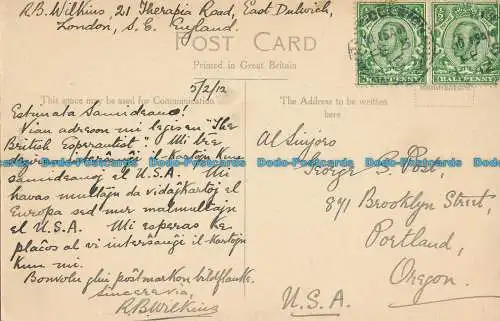 R.B. Wilkins, 21 Therapia Road, East Dulwich,
London, S.E. England.
POST CARD
Printed in Great Britain
5/2/12
This space may be used for Communication
The Address to be written
here
Estimata Samideano!
Vian adreson mi legis en "The
British Esperantist" Mi tre
interŝanĝi il. kartojn kun
samideanoj el U.S.A. Mi
havas multajn da vidaĵkartoj el
Europa sed nur malmultajn
el U.S.A. Mi esperas ke
plaĉos al vi interŝanĝi il-kartojn
kun mi.
Bonvolu glui poŝtmarkon bildflanke.
Sincere via,
R.B. Wilkins
Al Sinjoro
George S. Post,
871 Brooklyn Street,
Portland,
Oregon.
U.S.A.
HALFPENNY
HALFPENNY
Dodo-Postcards